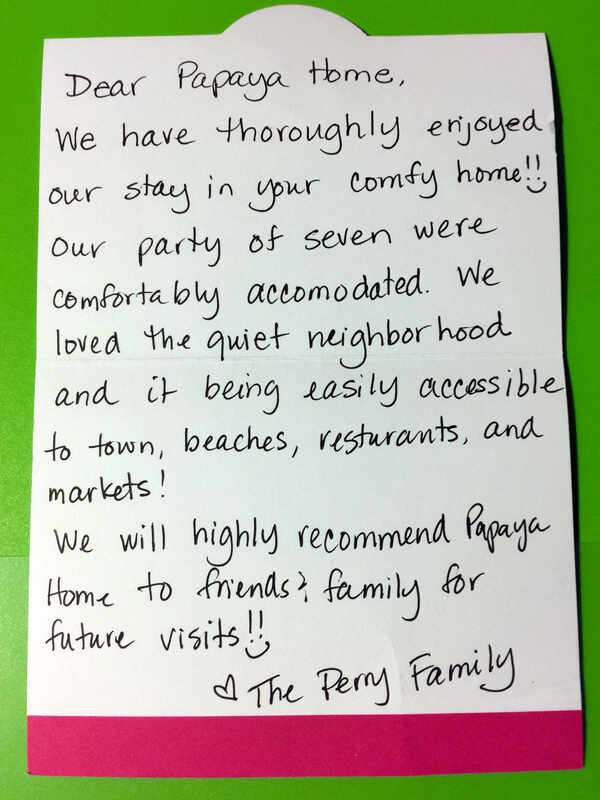 Dear Papaya Home,
We have thoroughly enjoyed
our stay in your comfy home!!
Our party of seven were
comfortably accomodated. We
loved the quiet neighborhood
and it being easily accessible
to town, beaches, resturants, and
markets!
We will highly recommend Papaya
Home to friends & family for
future visits!!
♡ The Perry Family